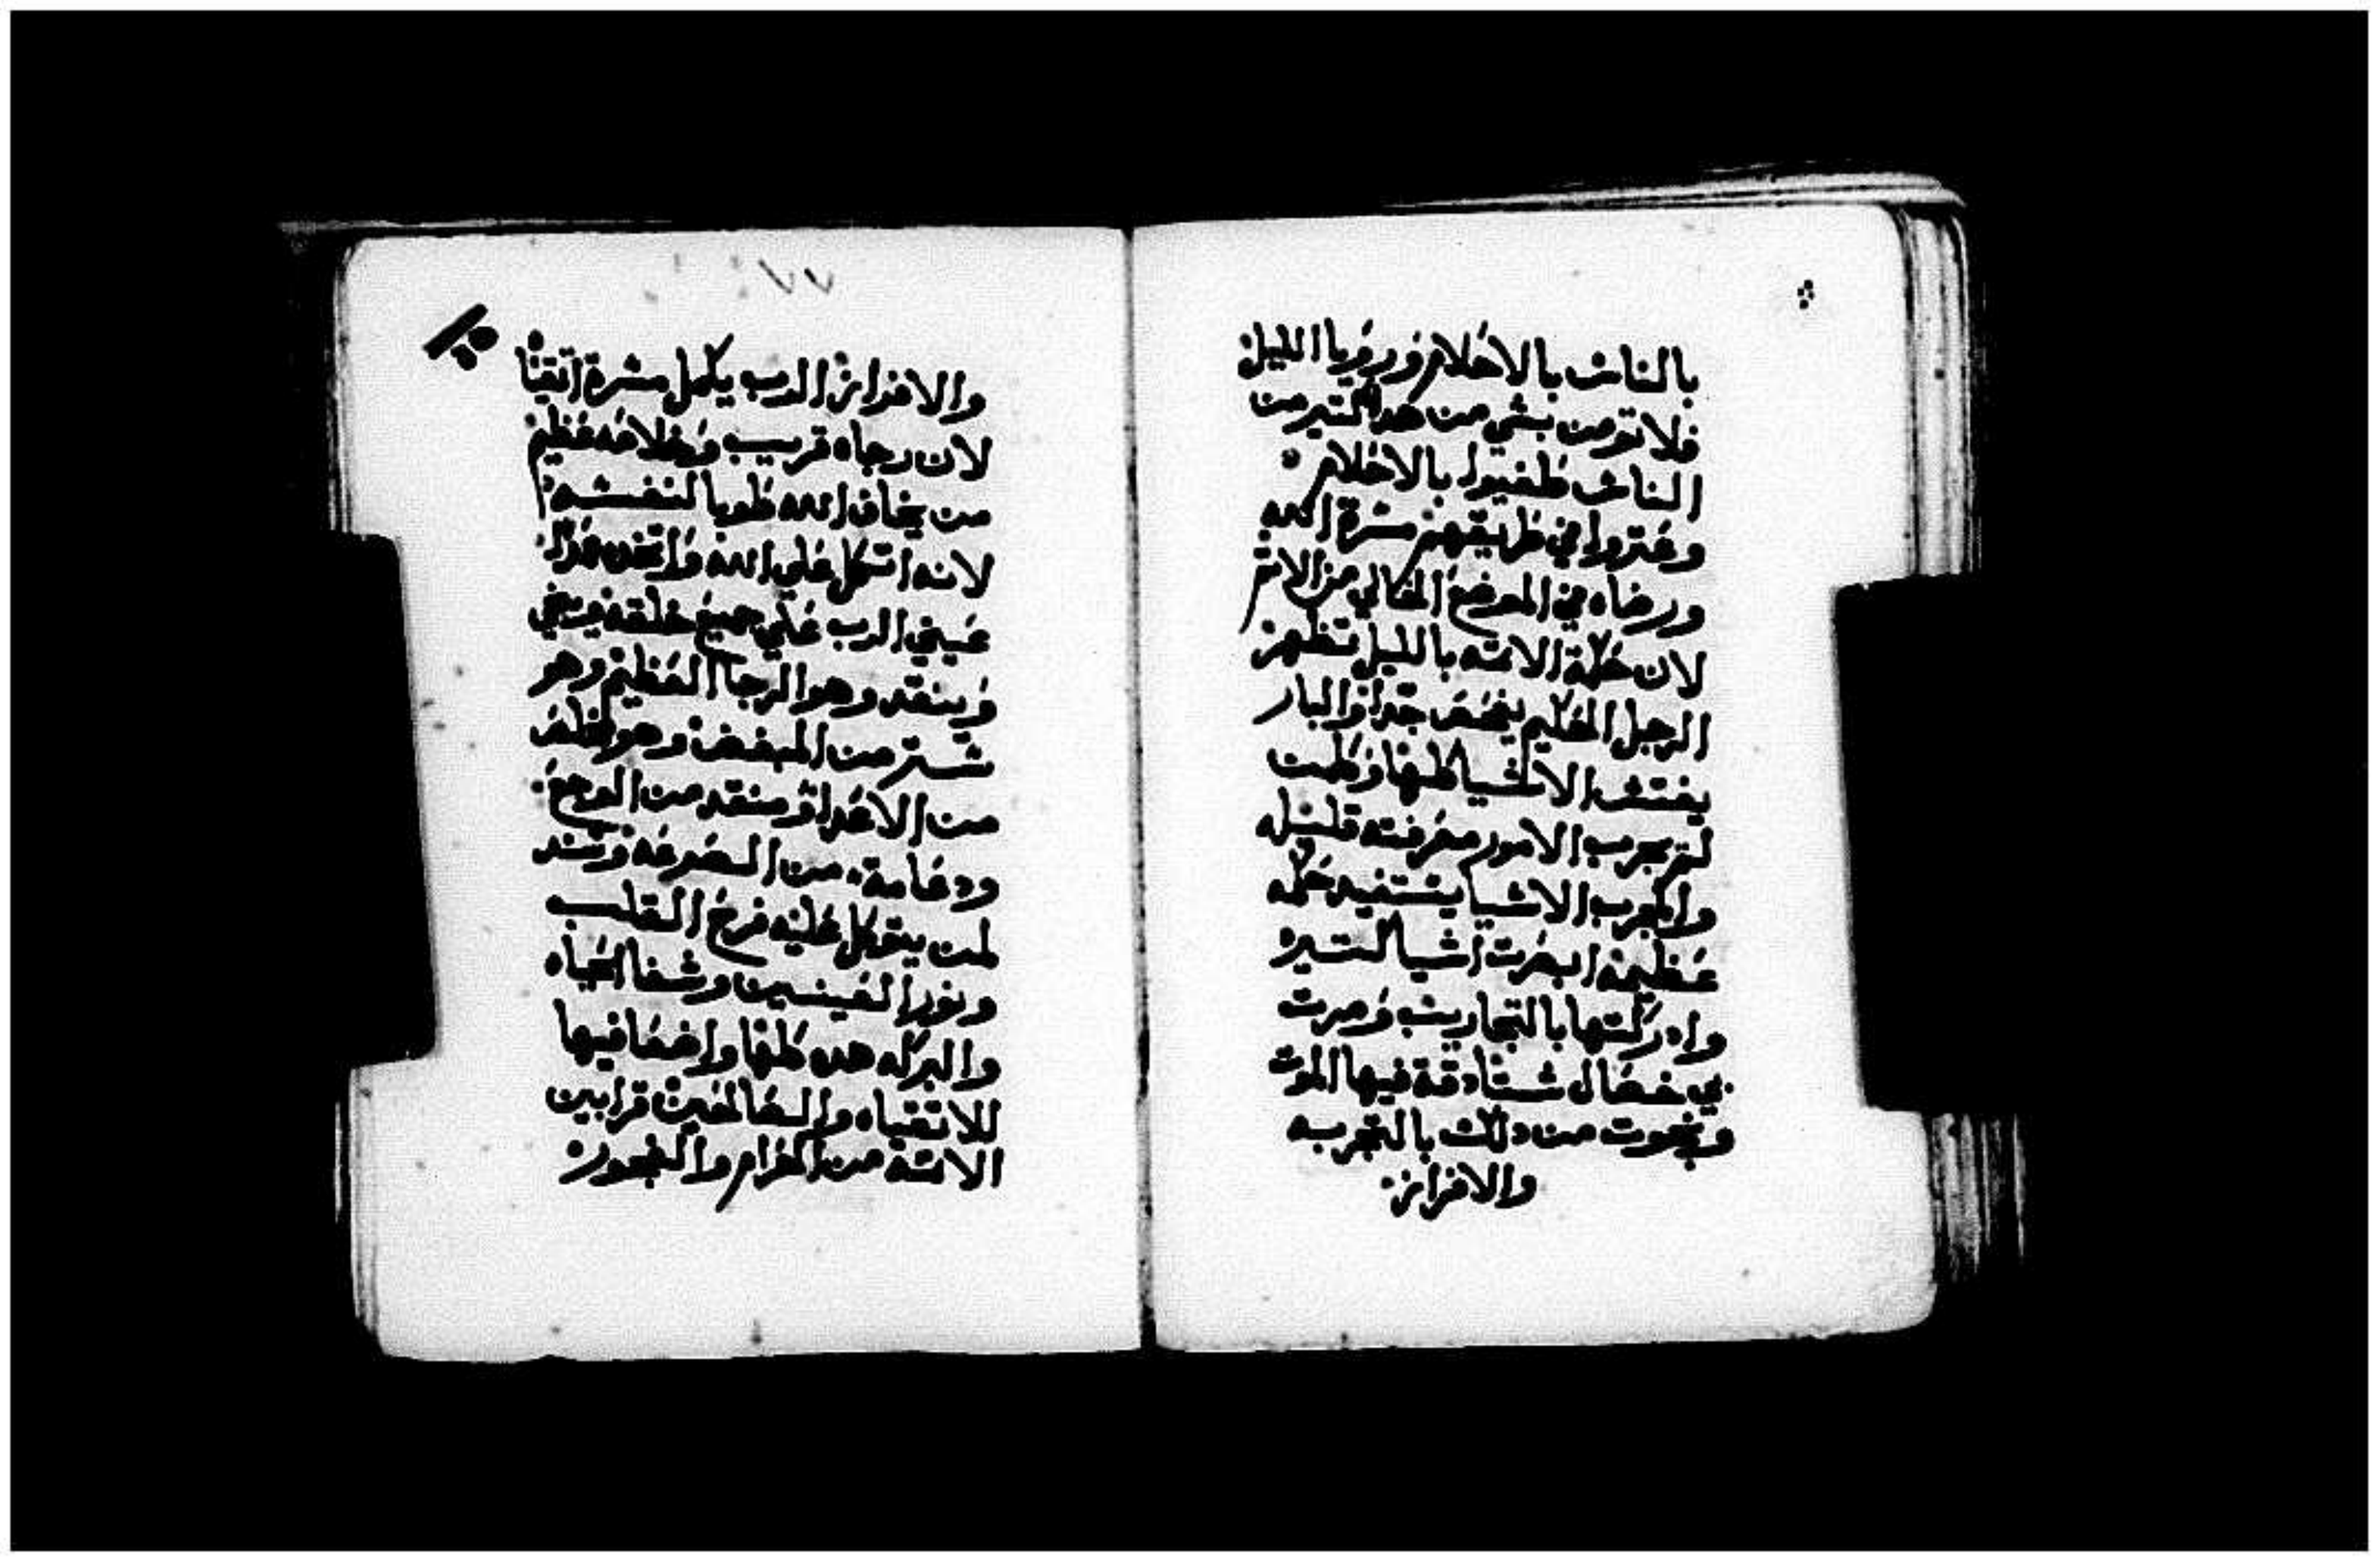 بالناس بالاحلام ورويا الليل
فلا تومن بشي من هدا كتير من
الناس طغيوا بالاحلام
وعتروا في طريقهم مسرة الله
ورضاه في الموضع الخالي من الاتم
لان حكمة الاتمه بالليل تظهر
الرجل الحكيم يفحص جدا والبار
يفتش الاشيا كلها ومن
لم يجرب الامور معرفته قليله
والمجرب الاشيا يستفيد حكمه
عظيمه ابصرت اشيا كتيره
وادركتها بالتجاريب ومرت
بي خصال شتا دقة فيها الموت
ونجوت من دلك بالتجربه
والافراز
٧٧
والافراز الرب يكمل مسرة اتقياه
لان رجاه قريب وخلاصه عظيم
من يخاف الله طوبا لنفسه
لانه اتكل علي الله
عيني الرب علي جميع خلقه
وينقد وهو الرجا العظيم وهو
ستر من المبغض وهو مخلص
من الاعدا ومنقد من الوجع
ودعامة من الصرعه وسند
لمن يتوكل عليه فرح القلب
ونور العينين وشفا الحياه
والبركه هده كلها واضعافها
للاتقياه والصالحين قرابين
الاتمة من الحرام والفجور